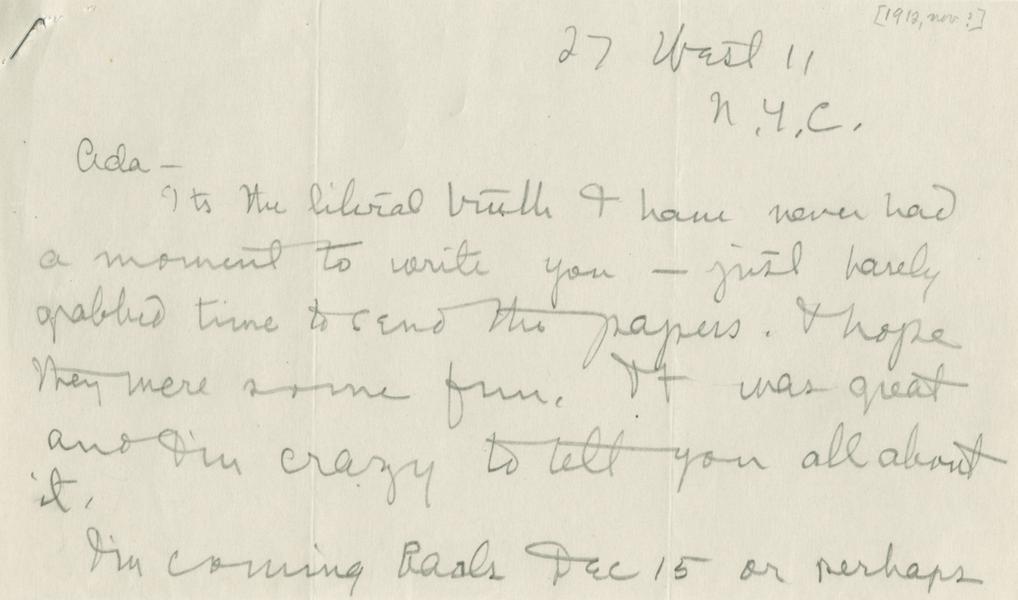 [1912, nov?]
27 West 11
N.Y.C.
Ada —
Its the literal truth I have never had
a moment to write you — just barely
grabbed time to send the papers. I hope
they were some fun. It was great
and I'm crazy to tell you all about
it.
I'm coming back Dec 15 or perhaps